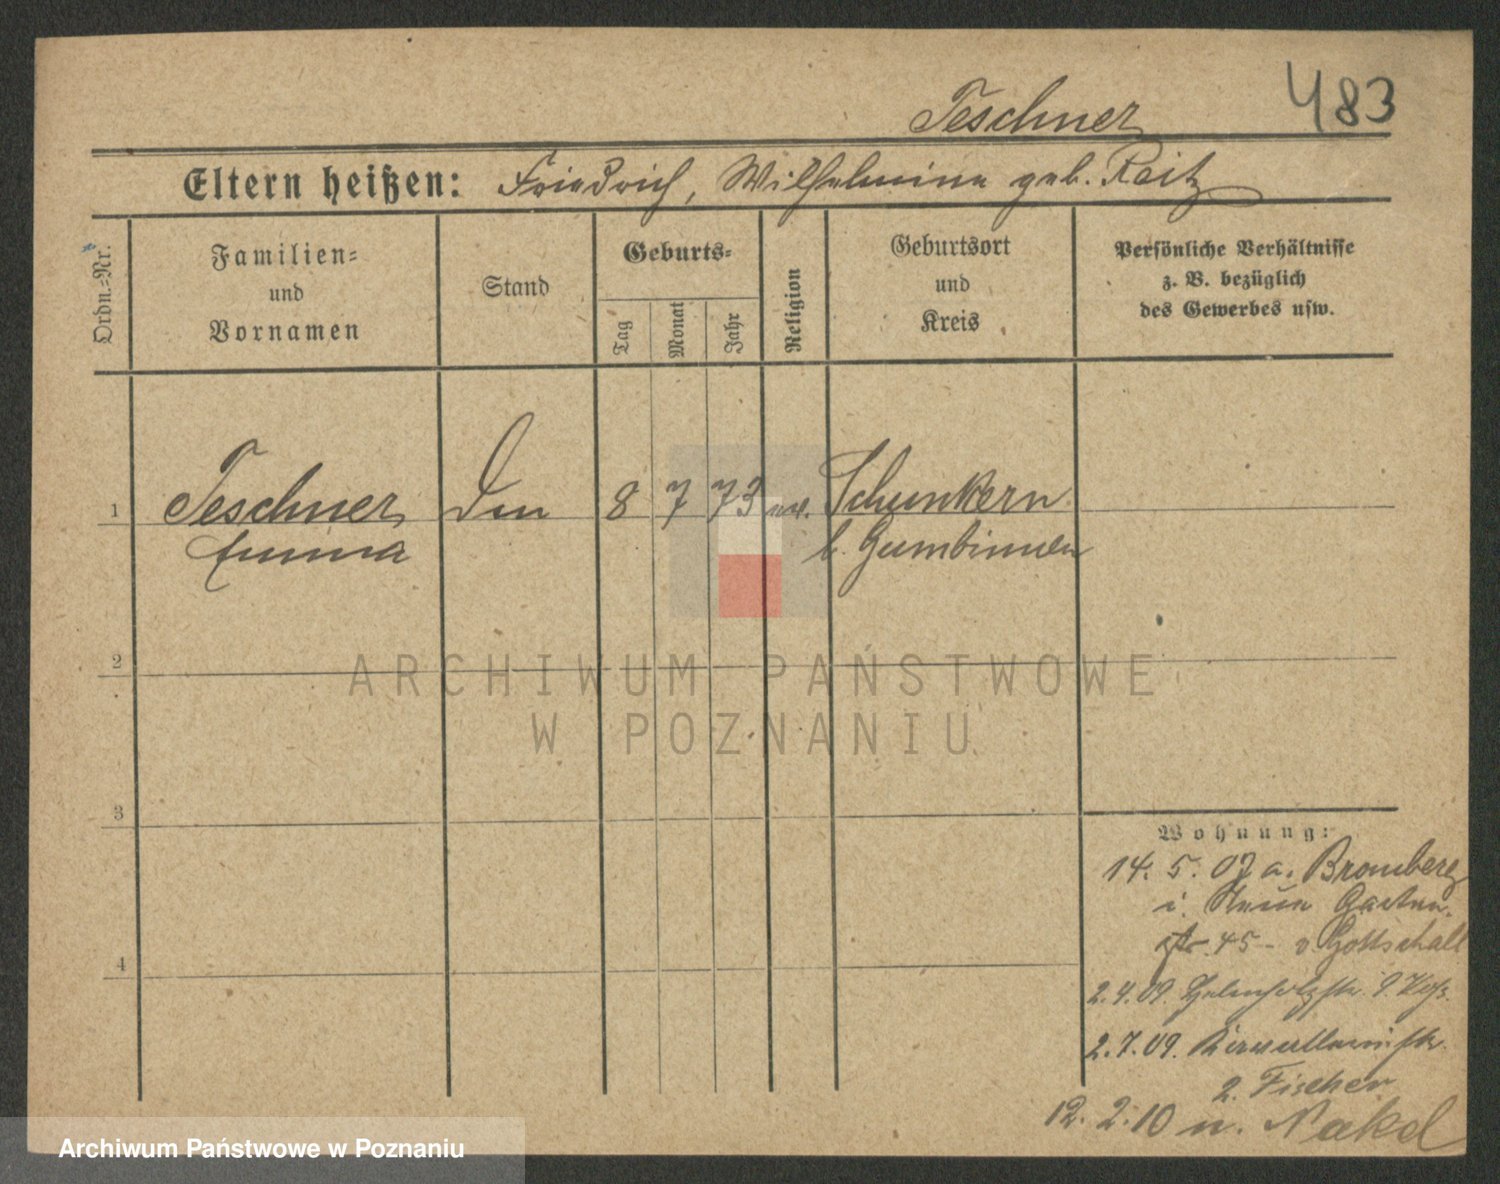 Teschner
483
Eltern heißen: Friedrich, Wilhelmine geb. Reitz
Ordn.-Nr.
Familien-
und
Vornamen
Stand
Geburts-
Tag
Monat
Jahr
Religion
Geburtsort
und
Kreis
Persönliche Verhältnisse
z. B. bezüglich
des Gewerbes usw.
1 Teschner 8 7 73 ev. Schunkern
Emma b. Gumbinnen
2
ARCHIWUM PAŃSTWOWE
W POZNANIU
3
Wohnung:
14. 5. 07 a. Bromberg
i. Neue Garten-
str. 45 - v Gottschall
4
2. 4. 09.
2. 7. 09.
2. Fischer
12. 2. 10 n. Nakel
Archiwum Państwowe w Poznaniu